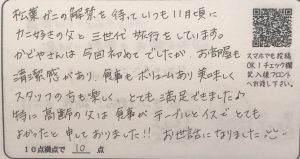 松葉ガニの解禁を待っていつも11月頃に
カニ好きの父と三世代旅行をしています。
かどやさんは今回初めてでしたが、お部屋も
清潔感があり、食事もボリュームあり美味しく
スタッフの方も楽しく、とても満足できました♪
特に高齢の父は食事がテーブルとイスでとても
よかったと申しておりました!! お世話になりました
10点満点で 10 点
スマホでも投稿
OK!チェック欄
記入後フロント
へお渡し下さい。